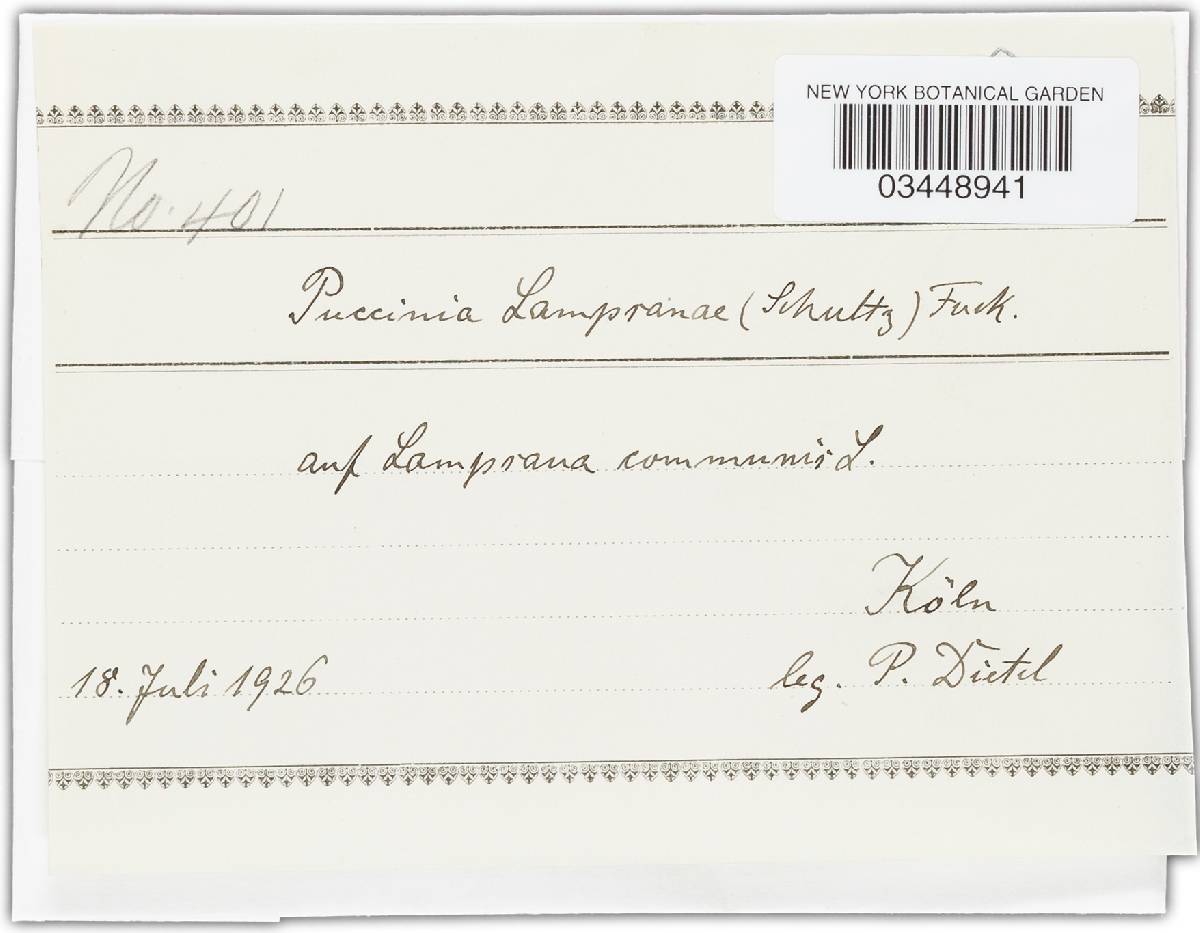 NEW YORK BOTANICAL GARDEN
03448941
No. 401
Puccinia Lampsanae (Schultz) Fuck.
auf Lampsana communis L.
Köln
18. Juli 1926
leg. P. Dietel